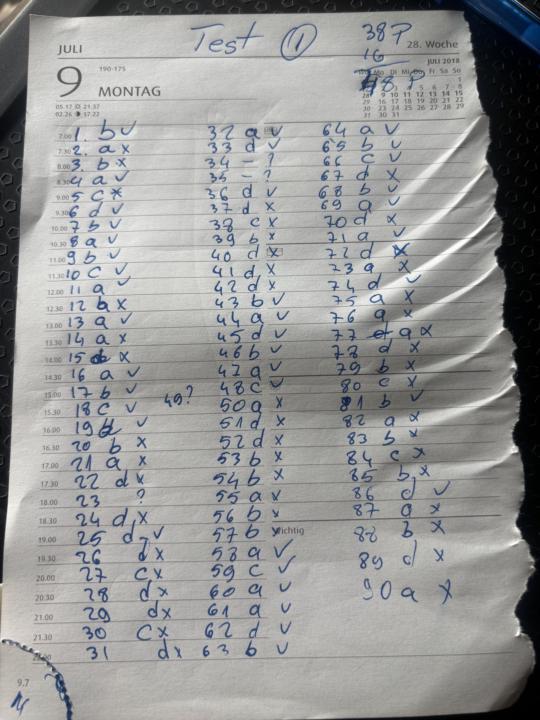 JULI
Test 1
38P
28. Woche
9
190-175
16
JULI 2018
MONTAG
48 P
05.17 21.37
02.26 17.22
7.00 1. b ✓
7.30 2. a x
8.00 3. b x
8.30 4 a ✓
9.00 5 c x
9.30 6 d ✓
10.00 7 b ✓
10.30 8 a ✓
11.00 9 b ✓
11.30 10 c ✓
12.00 11 a ✓
12.30 12 b x
13.00 13 a ✓
13.30 14 a x
14.00 15 b x
14.30 16 a ✓
15.00 17 b ✓
15.30 18 c ✓
16.00 19 b ✓
16.30 20 b x
17.00 21 a x
17.30 22 d x
18.00 23 ?
18.30 24 d x
19.00 25 d ✓
19.30 26 d x
20.00 27 c x
20.30 28 d x
21.00 29 d x
21.30 30 c x
22.00 31 d x
32 a ✓
33 d ✓
34 – ?
35 – ?
36 d ✓
37 d x
38 c x
39 b x
40 d x
41 d x
42 d x
43 b ✓
44 a ✓
45 d ✓
46 b ✓
47 a ✓
48 c ✓
49?
50 a x
51 d x
52 d x
53 b x
54 b x
55 a ✓
56 b ✓
57 b Wichtig
58 a ✓
59 c ✓
60 a ✓
61 a ✓
62 d ✓
63 b ✓
64 a ✓
65 b ✓
66 c ✓
67 d x
68 b ✓
69 a ✓
70 d x
71 a ✓
72 d x
73 a x
74 d ✓
75 a x
76 a x
77 a x
78 d x
79 b x
80 c x
81 b ✓
82 a x
83 b x
84 c x
85 b x
86 d ✓
87 a x
88 b x
89 d x
90 a x
9.7